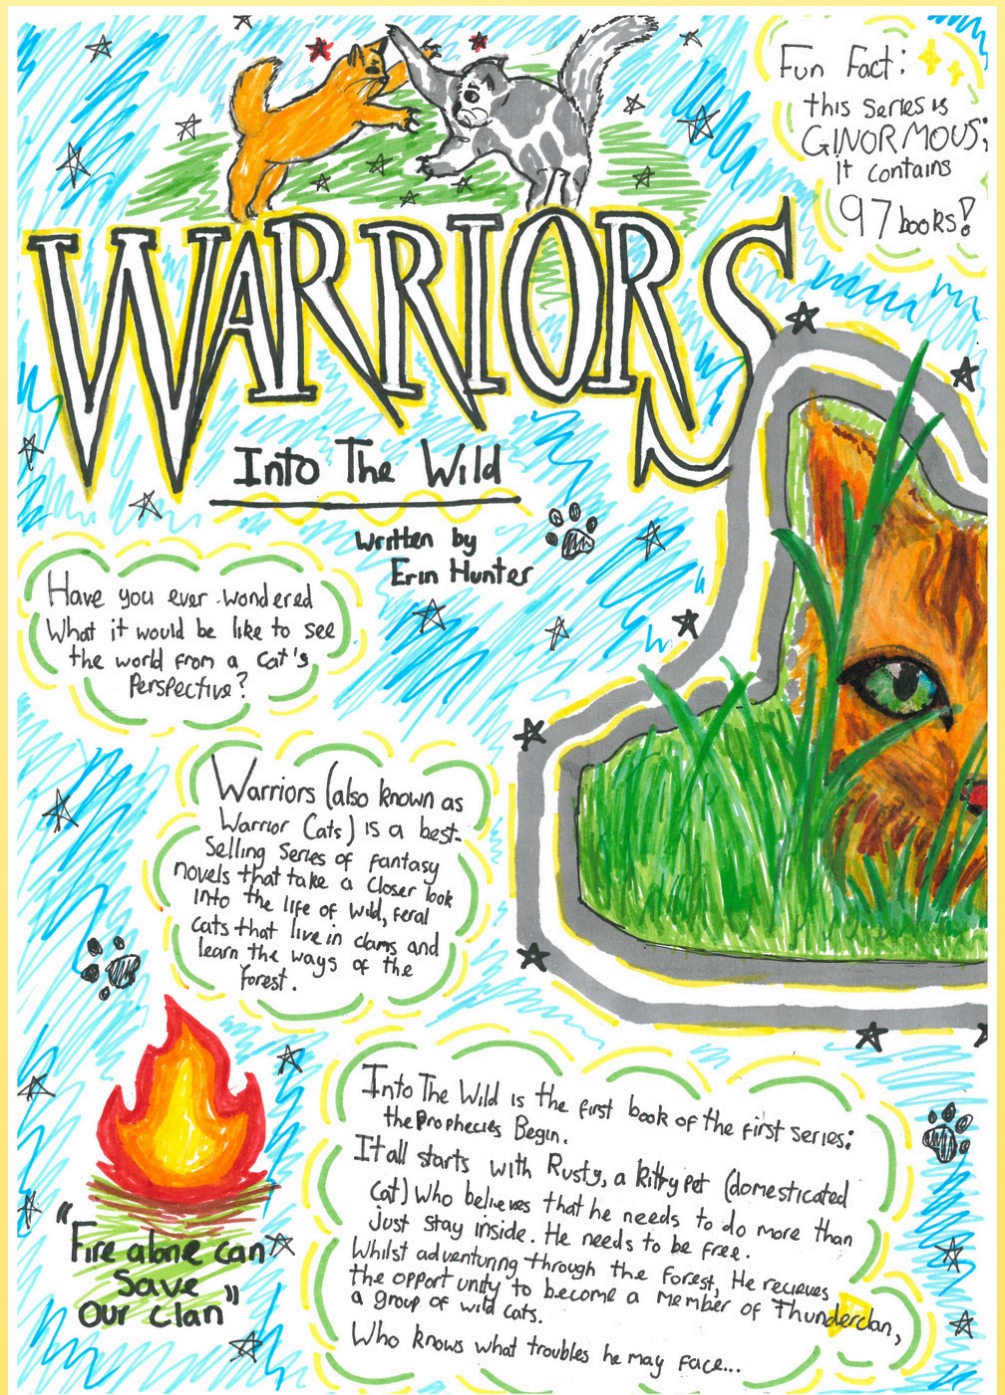 Fun Fact:
this series is
GINORMOUS;
it contains
97 books!
WARRIORS
Into The Wild
Written by
Erin Hunter
Have you ever wondered
What it would be like to see
the world from a cat's
Perspective?
Warriors (also known as
Warrior Cats) is a best-
Selling Series of fantasy
novels that take a closer look
into the life of wild, feral
cats that live in clans and
learn the ways of the
forest.
Into The Wild is the first book of the first series:
the Prophecies Begin.
It all starts with Rusty, a kittypet (domesticated
cat) who believes that he needs to do more than
just stay inside. He needs to be free.
Whilst adventuring through the forest, He recieves
the opportunity to become a member of Thunderclan,
a group of wild cats.
Who knows what troubles he may face...
"Fire alone can
Save
Our clan"